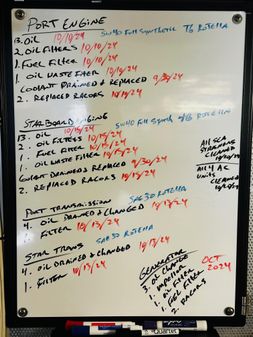 PORT ENGINE
13. OIL 10/10/24 5W40 Full Synthetic T6 ROTELLA
2. OIL FILTERS 10/10/24
1. FUEL FILTER 10/10/24
1. OIL WASTE FILTER 10/10/24
COOLANT DRAINED & REPLACED 9/30/24
2. REPLACED RACORS 10/15/24
STARBOARD ENGINE
13. OIL 10/15/24 5W40 Full SYNTH T6 ROTELLA
2. OIL FILTERS 10/15/24
1. FUEL FILTER 10/15/24
1. OIL WASTE FILTER 10/15/24
COOLANT DRAINED & REPLACED 9/30/24
2. REPLACED RACORS 10/15/24
ALL SEA
STRAINERS
CLEANED
ALL 4 AC
UNITS
CLEANED
PORT TRANSMISSION SAE 30 ROTELLA
4. OIL DRAINED & CHANGED 10/13/24
1. FILTER 10/13/24
STAR TRANS SAE 30 ROTELLA
4. OIL DRAINED & CHANGED 10/13/24
1. FILTER 10/13/24
GENERATOR
OIL CHANGE
1. IMPELLER
1. OIL FILTER
1. FUEL FILTER
2. RACORS
OCT
2024